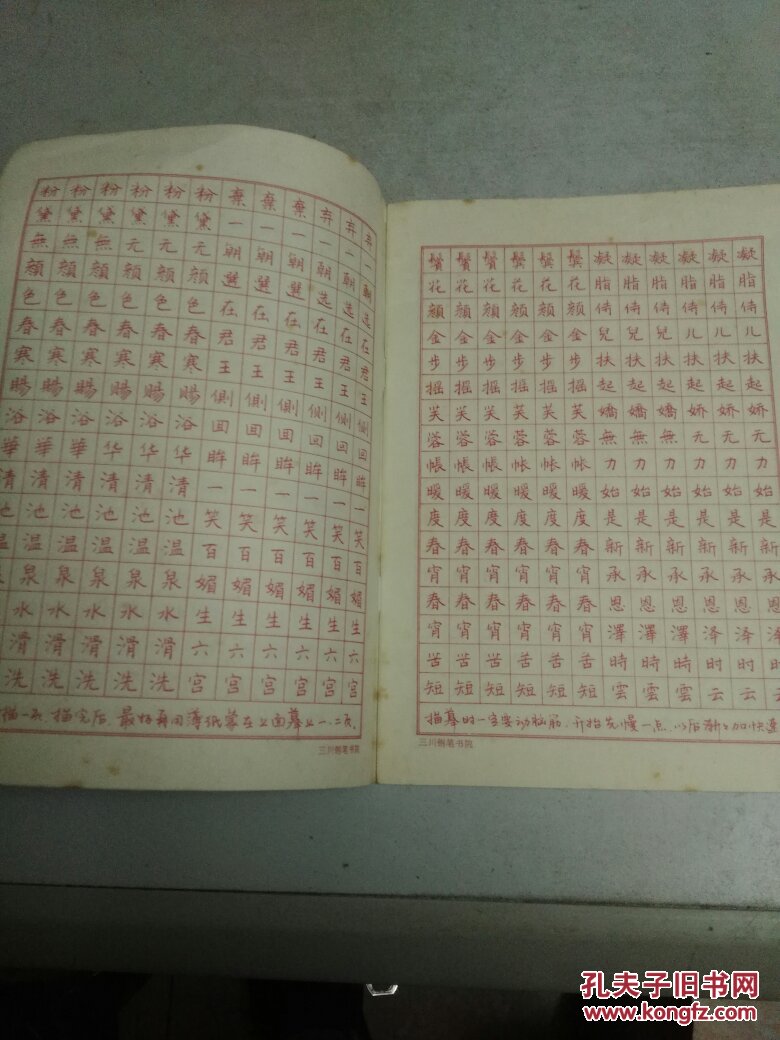 弃一朝选在君王侧回眸一笑百媚生六宫
弃一朝选在君王侧回眸一笑百媚生六宫
弃一朝选在君王侧回眸一笑百媚生六宫
棄一朝選在君王側回眸一笑百媚生六宫
棄一朝選在君王側回眸一笑百媚生六宫
棄一朝選在君王側回眸一笑百媚生六宫
粉黛无颜色春寒赐浴华清池温泉水滑洗
粉黛无颜色春寒赐浴华清池温泉水滑洗
粉黛无颜色春寒赐浴华清池温泉水滑洗
粉黛無顏色春寒賜浴華清池温泉水滑洗
粉黛無顏色春寒賜浴華清池温泉水滑洗
粉黛無顏色春寒賜浴華清池温泉水滑洗
描一页 描完后，最好再用薄纸蒙在上面摹上一、二页。
三川钢笔书院
凝脂侍儿扶起娇无力始是新承恩泽时云
凝脂侍儿扶起娇无力始是新承恩泽时云
凝脂侍儿扶起娇无力始是新承恩泽时云
凝脂侍兒扶起嬌無力始是新承恩澤時雲
凝脂侍兒扶起嬌無力始是新承恩澤時雲
凝脂侍兒扶起嬌無力始是新承恩澤時雲
鬓花颜金步摇芙蓉帐暖度春宵春宵苦短
鬓花颜金步摇芙蓉帐暖度春宵春宵苦短
鬓花颜金步摇芙蓉帐暖度春宵春宵苦短
鬢花顏金步搖芙蓉帳暖度春宵春宵苦短
鬢花顏金步搖芙蓉帳暖度春宵春宵苦短
鬢花顏金步搖芙蓉帳暖度春宵春宵苦短
描摹时一定要动脑筋，开始先慢一点，以后渐々加快速
三川钢笔书院
孔夫子旧书网
www.kongfz.com